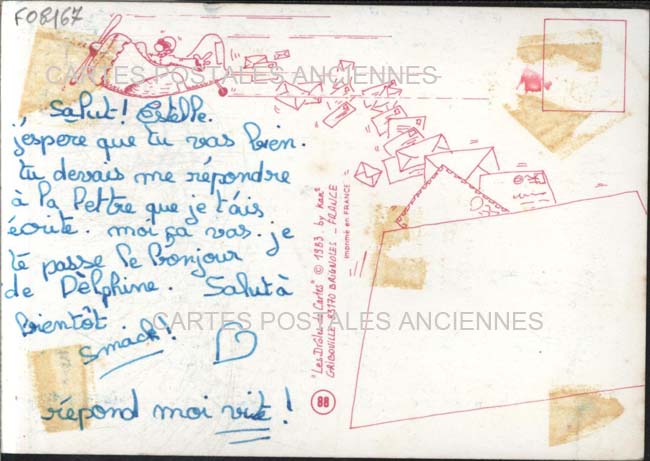 F08167
CARTES POSTALES ANCIENNES
Salut! Estelle.
j'espère que tu vas bien.
tu dessais me répondre
à la lettre que je t'ais
écrite. moi ça vas. je
te passe le bonjour
de Dèlphine. Salut à
bientôt.
CARTES POSTALES ANCIENNES
Smack!
répond moi vite!
"Les Drôles de Cartes" © 1983 by kan's
GRIBOUVILLE 83170 BRIGNOLES - FRANCE
Imprimé en FRANCE
88